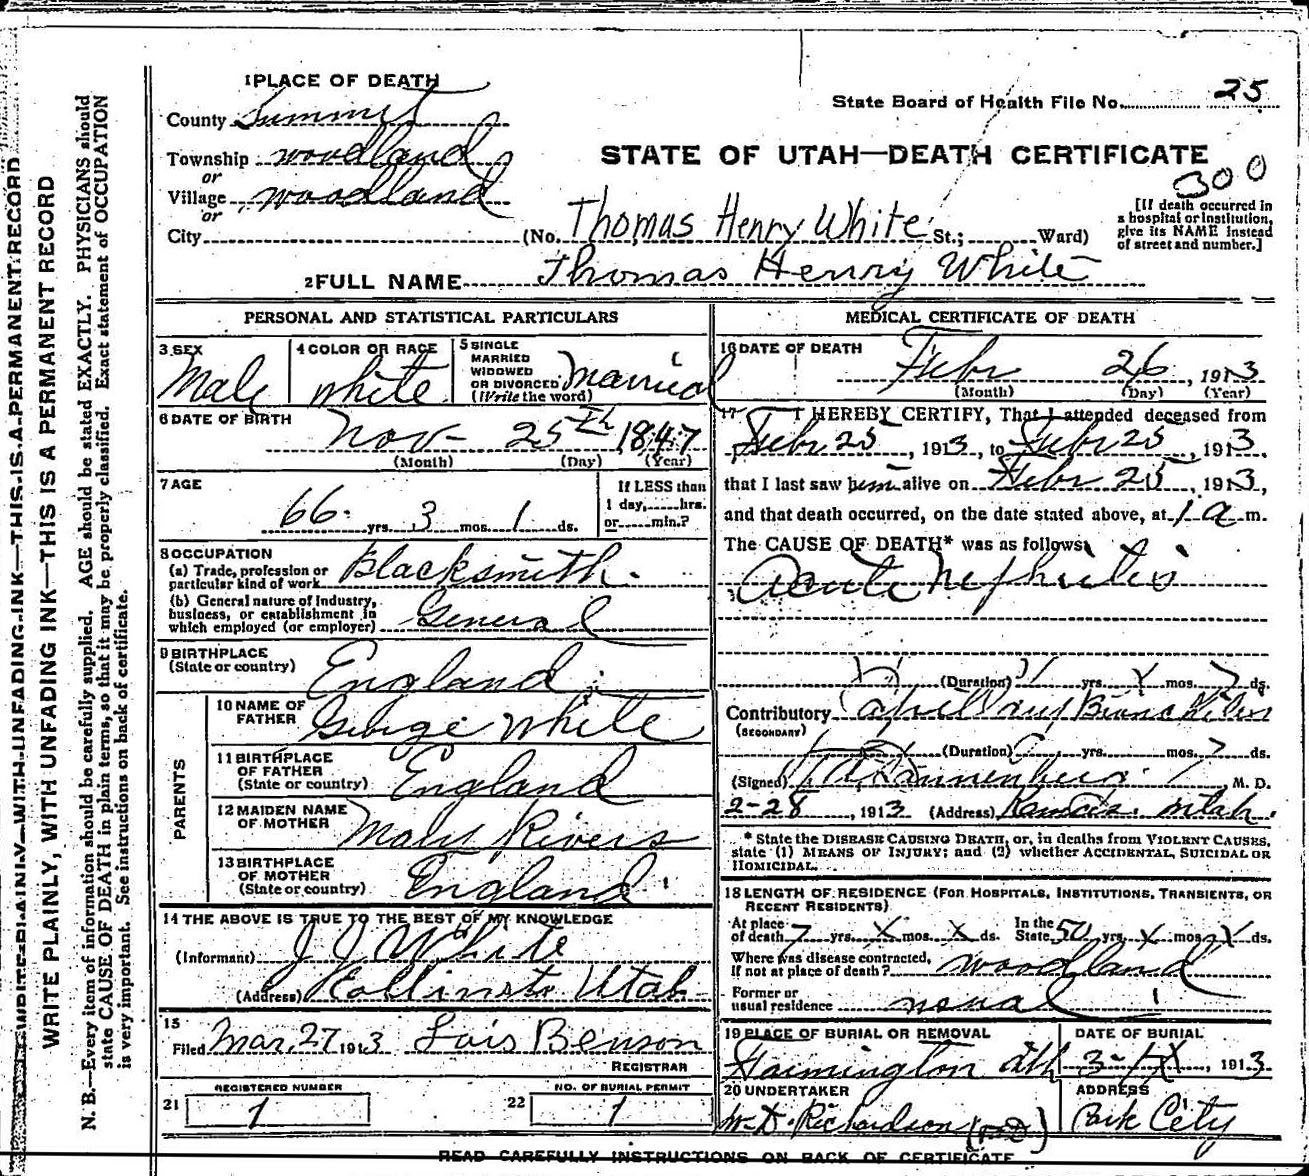 1 PLACE OF DEATH
State Board of Health File No. 25
County Summit
Township woodland
or
Village woodland
or
City
STATE OF UTAH—DEATH CERTIFICATE
300
(No. Thomas Henry White St.; Ward)
[If death occurred in a hospital or institution, give its NAME instead of street and number.]
2 FULL NAME Thomas Henry White
PERSONAL AND STATISTICAL PARTICULARS
3 SEX
Male
4 COLOR OR RACE
white
5 SINGLE MARRIED WIDOWED OR DIVORCED (Write the word)
married
6 DATE OF BIRTH
Nov 25th 1847
(Month) (Day) (Year)
7 AGE
66 yrs. 3 mos. 1 ds.
If LESS than 1 day, hrs. or min.?
8 OCCUPATION
(a) Trade, profession or particular kind of work Blacksmith
(b) General nature of Industry, business, or establishment in which employed (or employer) General
9 BIRTHPLACE
(State or country) England
PARENTS
10 NAME OF FATHER George White
11 BIRTHPLACE OF FATHER (State or country) England
12 MAIDEN NAME OF MOTHER Rivers
13 BIRTHPLACE OF MOTHER (State or country) England
14 THE ABOVE IS TRUE TO THE BEST OF MY KNOWLEDGE
(Informant) J J White
(Address) Utah
15
Filed Mar. 27 1913 Lois Benson
REGISTRAR
REGISTERED NUMBER
21 1
NO. OF BURIAL PERMIT
22 1
MEDICAL CERTIFICATE OF DEATH
16 DATE OF DEATH
Febr 26, 1913
(Month) (Day) (Year)
17 I HEREBY CERTIFY, That I attended deceased from
Febr 25, 1913, to Febr 25, 1913.
that I last saw him alive on Febr 25, 1913,
and that death occurred, on the date stated above, at 1 a m.
The CAUSE OF DEATH* was as follows:
Acute Nephritis
(Duration) yrs. mos. 7 ds.
Contributory
(SECONDARY)
(Duration) yrs. mos. 7 ds.
(Signed) M. D.
2-28, 1913 (Address) Kamas Utah.
* State the DISEASE CAUSING DEATH, or, in deaths from VIOLENT CAUSES,
state (1) MEANS OF INJURY; and (2) whether ACCIDENTAL, SUICIDAL OR
HOMICIDAL.
18 LENGTH OF RESIDENCE (FOR HOSPITALS, INSTITUTIONS, TRANSIENTS, OR
RECENT RESIDENTS)
At place of death 7 yrs. X mos. X ds. In the State 50 yrs. X mos. X ds.
Where was disease contracted, if not at place of death? woodland
Former or usual residence usual
19 PLACE OF BURIAL OR REMOVAL
Farmington Utah
DATE OF BURIAL
3-1, 1913
20 UNDERTAKER
W. D. Richardson
ADDRESS
Park City
READ CAREFULLY INSTRUCTIONS ON BACK OF CERTIFICATE
WRITE PLAINLY WITH UNFADING INK—THIS IS A PERMANENT RECORD
WRITE PLAINLY, WITH UNFADING INK—THIS IS A PERMANENT RECORD
N. B.—Every item of information should be carefully supplied. AGE should be stated EXACTLY. PHYSICIANS should
state CAUSE OF DEATH in plain terms, so that it may be properly classified. Exact statement of OCCUPATION
is very important. See instructions on back of certificate.